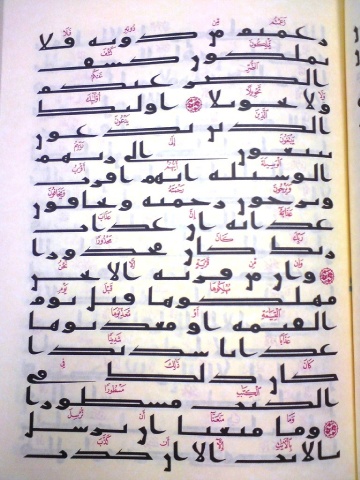 زعمتم من دونه فلا
يملكون كشف
الضر عنكم
ولا تحويلا اولئك
الذين يدعون
يبتغون الى ربهم
الوسيلة ايهم اقرب
ويرجون رحمته ويخافون
عذابه ان عذاب
ربك كان محذورا
وان من قرية الا نحن
مهلكوها قبل يوم
القيمة او معذبوها
عذابا شديدا
كان ذلك في
الكتب مسطورا
وما منعنا ان نرسل
بالايت الا ان كذب